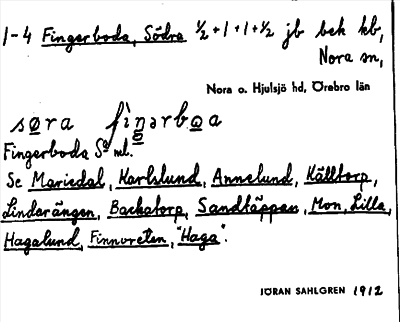 1-4 Fingerboda, Södra ½+1+1+½ jb bek kb,
Nora sn,
Nora o. Hjulsjö hd, Örebro län
søra fìŋərboa
Fingerboda Sö ml.
Se Mariedal, Karlslund, Annelund, Källtorp,
Lindarängen, Backatorp, Sandtäppan, Mon, Lilla,
Hagalund, Finnvreten, "Haga".
JÖRAN SAHLGREN 1912